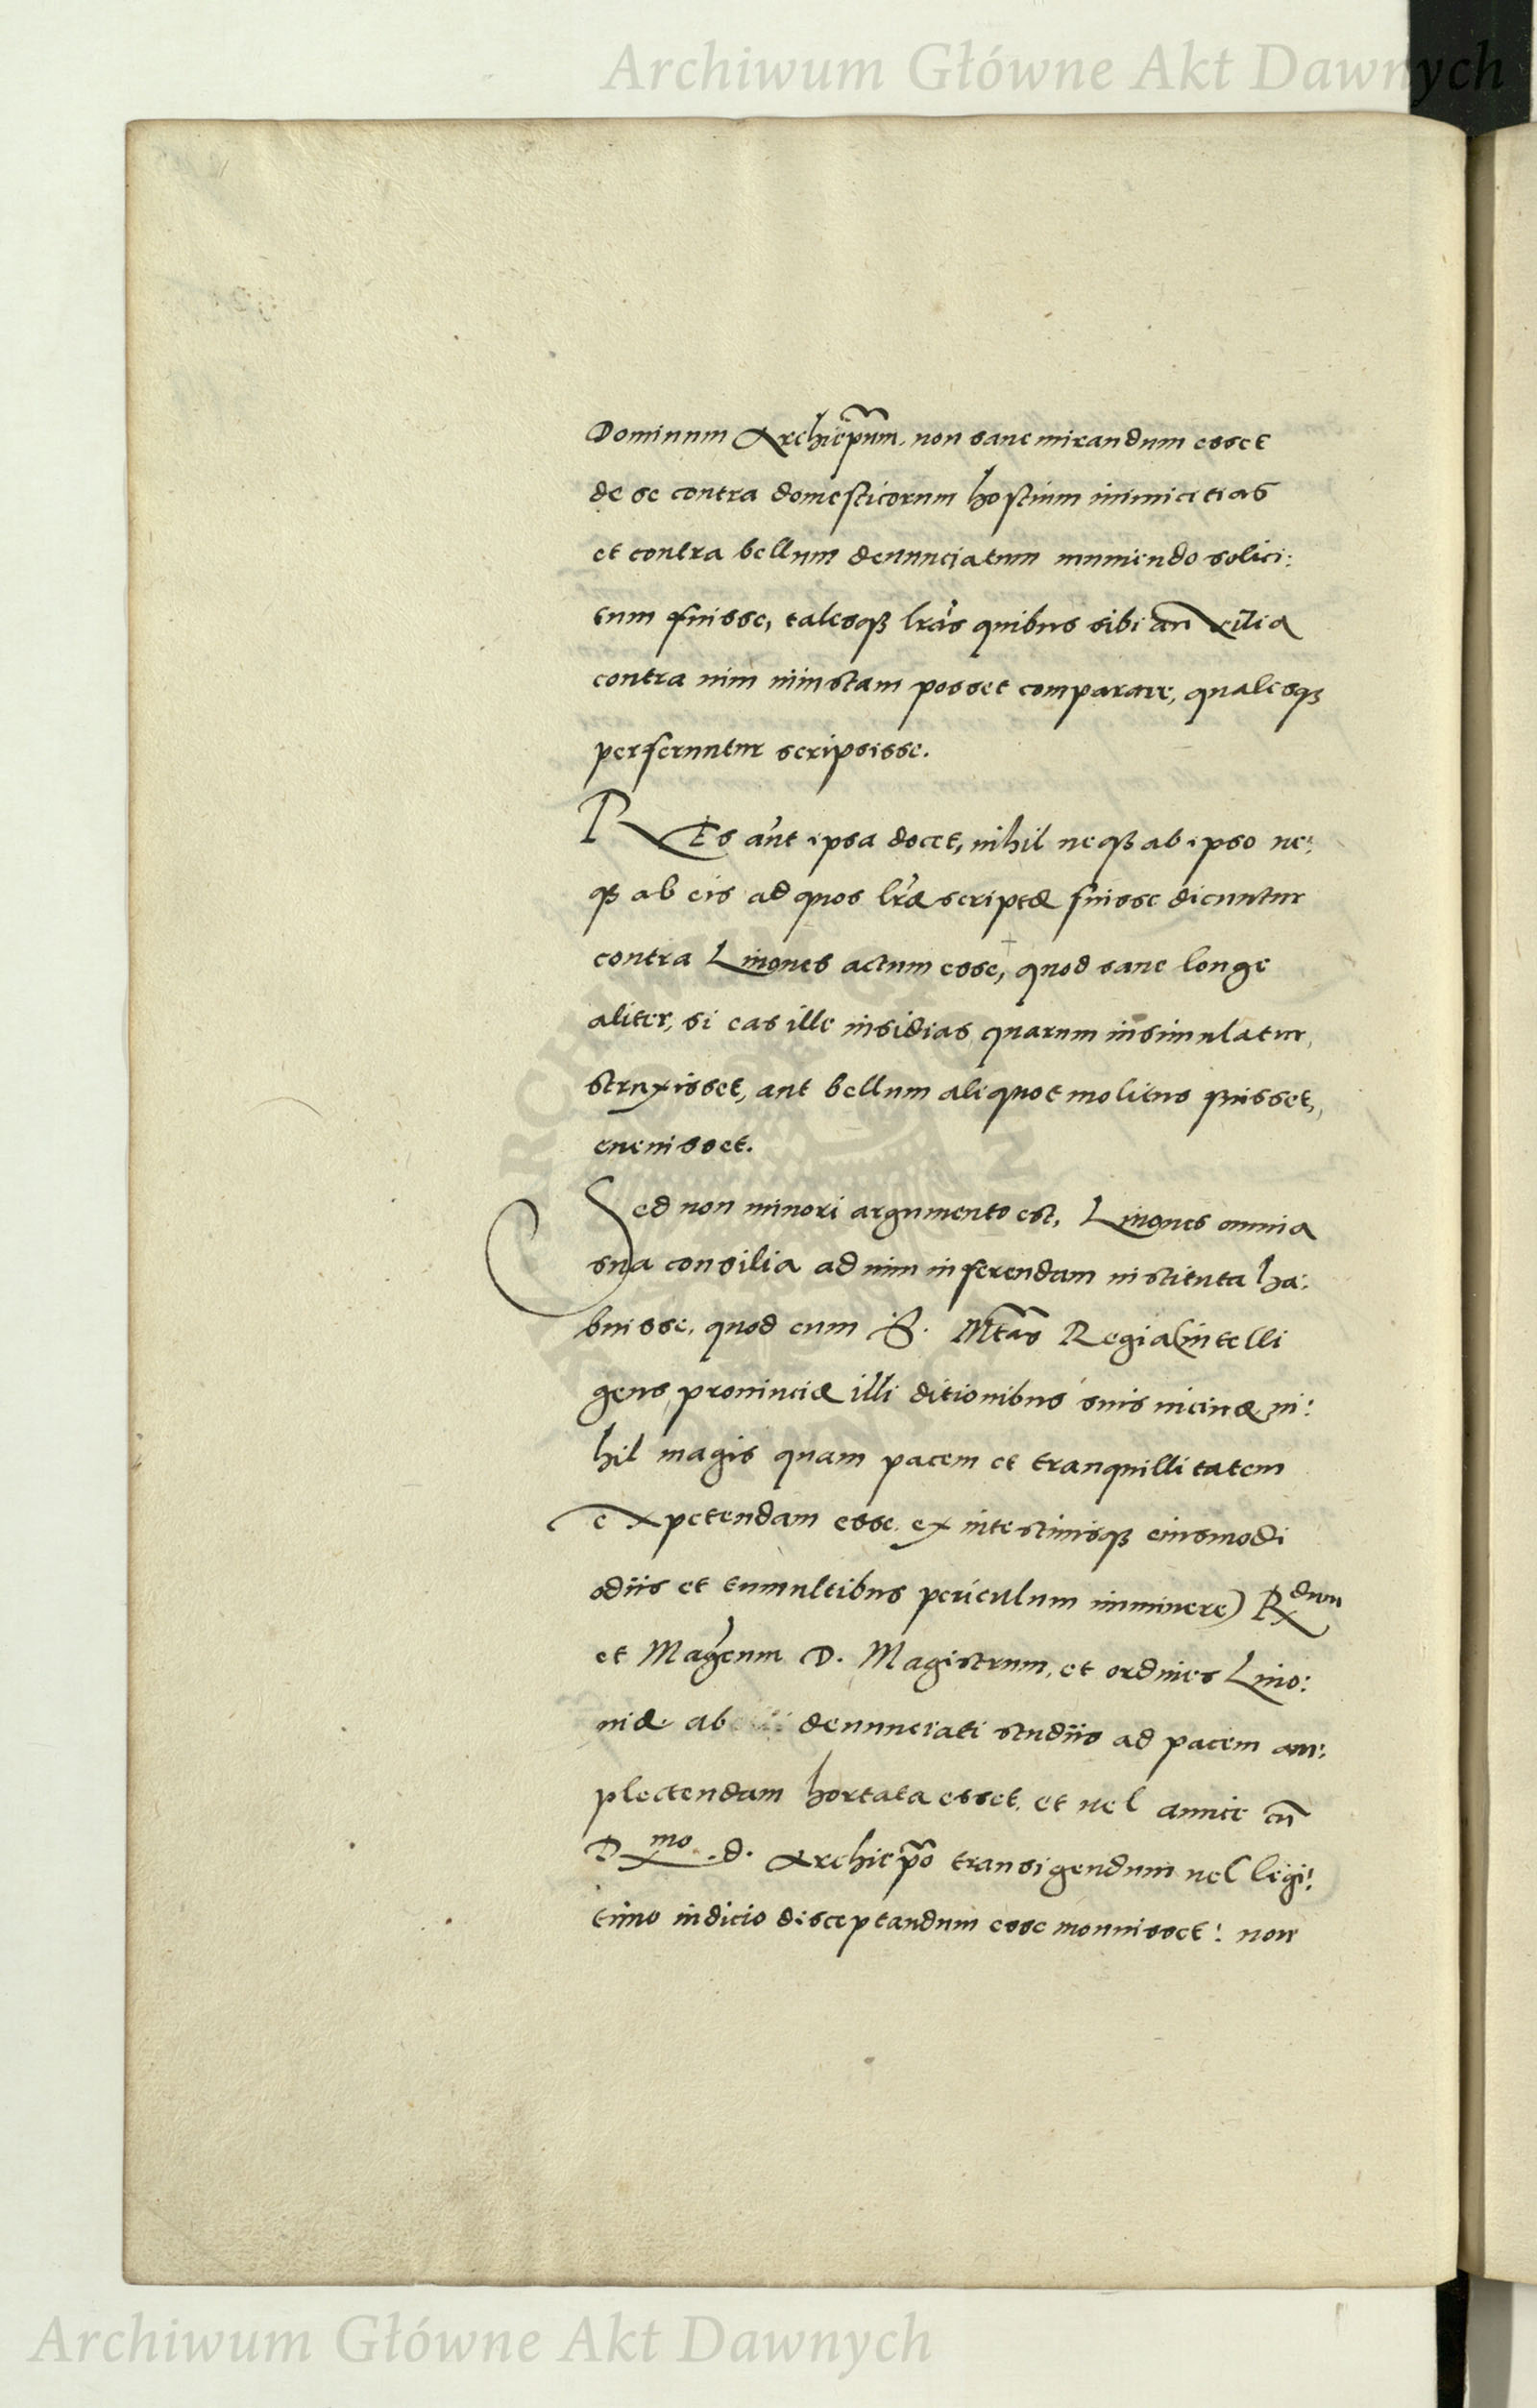 Archiwum Główne Akt Dawnych
Dominum Archiep̃um, non sane mirandum esset
de se contra domesticorum hostium inimicitias
et contra bellum denunciatum muniendo solici:
tum fuisse, talesqꝫ lr̃as quibus sibi auxilia
contra uim iniustam posset comparare, qualesqꝫ
perferuntur scripsisse.
REs aũt ipsa docet, nihil neqꝫ ab ipso ne:
qꝫ ab eis ad quos lr̃æ scriptæ fuisse dicuntur
contra Liuones actum esse, quod sane longe
aliter, si eas ille insidias quarum insimulatur,
struxisset, aut bellum aliquot molitus fuisset,
euenisset.
Sed non minori argumento est, Liuones omnia
sua consilia ad uim inferendam instituta ha:
buisse, quod cum S. Mtãs Regia (intelli
gens prouinciæ illi ditionibus suis uicinæ ni:
hil magis quam pacem et tranquillitatem
expetendam esse, ex intestinisqꝫ eiusmodi
odiis et tumultibus periculum imminere) R^dum
et Mag̃cum D. Magistrum, et ordines Liuo:
niæ ab denunciati studiis ad pacem am:
plectendam hortata esset, et uel amice cũ
R^mo .d. Archiep̃o transigendum uel legi:
timo iudicio disceptandum esse monuisset: non
Archiwum Główne Akt Dawnych